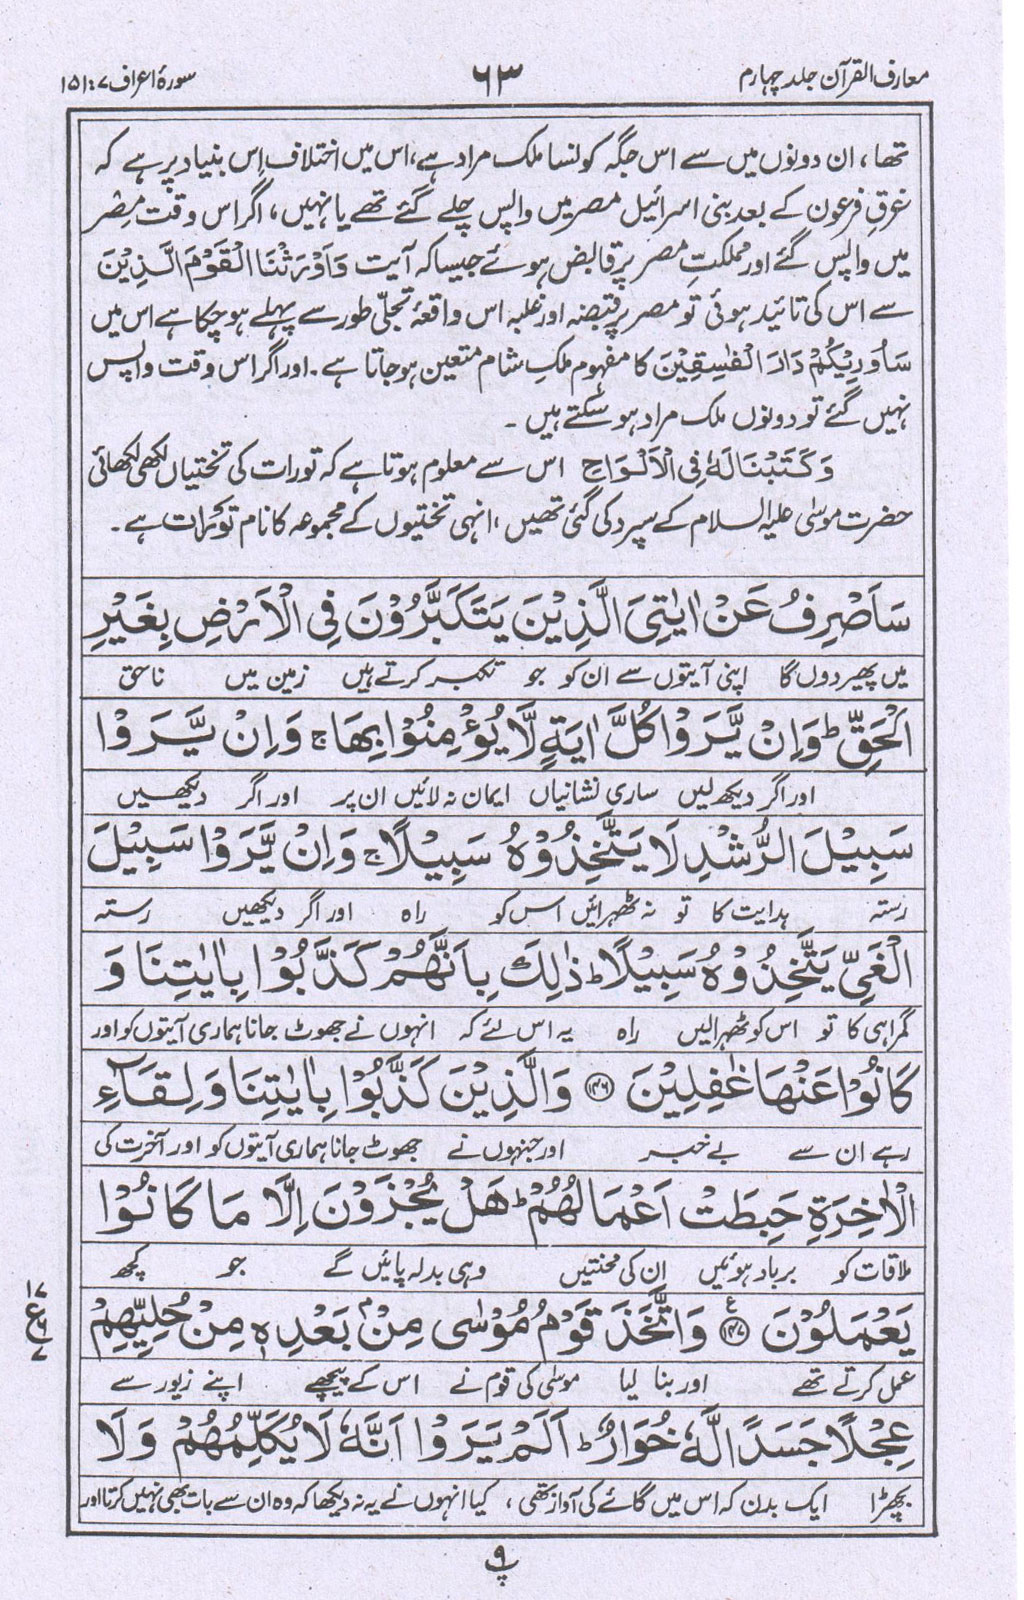 معارف القرآن جلد چہارم ۶۳ سورۂ اعراف ۷: ۱۵۱
تھا، ان دونوں میں سے اس جگہ کونسا ملک مراد ہے، اس میں اختلاف اِس بنیاد پر ہے کہ
غرقِ فرعون کے بعد بنی اسرائیل مصر میں واپس چلے گئے تھے یا نہیں، اگر اس وقت مِصْر
میں واپس گئے اور مملکتِ مصر پر قابض ہوئے جیسا کہ آیت وَاَوْرَثْنَا الْقَوْمَ الَّذِیْنَ
سے اس کی تائید ہوئی تو مصر پر قبضہ اور غلبہ اس واقعۂ تجلّی طور سے پہلے ہوچکا ہے اس میں
سَاُورِیْکُمْ دَارَ الْفٰسِقِیْنَ کا مفہوم ملکِ شام متعین ہوجاتا ہے۔ اور اگر اس وقت واپس
نہیں گئے تو دونوں ملک مراد ہوسکتے ہیں۔
وَکَتَبْنَا لَہٗ فِی الْاَلْوَاحِ اس سے معلوم ہوتا ہے کہ تورات کی تختیاں لکھی لکھائی
حضرت موسیٰ علیہ السلام کے سپرد کی گئی تھیں، انہی تختیوں کے مجموعہ کا نام تَورَات ہے۔
سَاَصْرِفُ عَنْ اٰیٰتِیَ الَّذِیْنَ یَتَکَبَّرُوْنَ فِی الْاَرْضِ بِغَیْرِ
میں پھیر دوں گا اپنی آیتوں سے ان کو جو تکبر کرتے ہیں زمین میں ناحق
الْحَقِّ ؕ وَاِنْ یَّرَوْا کُلَّ اٰیَۃٍ لَّا یُؤْمِنُوْا بِھَا ۚ وَاِنْ یَّرَوْا
اور اگر دیکھ لیں ساری نشانیاں ایمان نہ لائیں ان پر اور اگر دیکھیں
سَبِیْلَ الرُّشْدِ لَا یَتَّخِذُوْہُ سَبِیْلًا ۚ وَاِنْ یَّرَوْا سَبِیْلَ
رستہ ہدایت کا تو نہ ٹھہرائیں اس کو راہ اور اگر دیکھیں رستہ
الْغَیِّ یَتَّخِذُوْہُ سَبِیْلًا ؕ ذٰلِکَ بِاَنَّھُمْ کَذَّبُوْا بِاٰیٰتِنَا وَ
گمراہی کا تو اس کو ٹھہرالیں راہ یہ اس لئے کہ انہوں نے جھوٹ جانا ہماری آیتوں کو اور
کَانُوْا عَنْھَا غٰفِلِیْنَ ﴿۱۴۶﴾ وَالَّذِیْنَ کَذَّبُوْا بِاٰیٰتِنَا وَلِقَآءِ
رہے ان سے بے خبر اور جنہوں نے جھوٹ جانا ہماری آیتوں کو اور آخرت کی
الْاٰخِرَۃِ حَبِطَتْ اَعْمَالُھُمْ ؕ ھَلْ یُجْزَوْنَ اِلَّا مَا کَانُوْا
ملاقات کو برباد ہوئیں ان کی محنتیں وہی بدلہ پائیں گے جو کچھ
یَعْمَلُوْنَ ﴿۱۴۷﴾ ع وَاتَّخَذَ قَوْمُ مُوْسٰی مِنْۢ بَعْدِہٖ مِنْ حُلِیِّھِمْ
عمل کرتے تھے اور بنا لیا موسیٰ کی قوم نے اس کے پیچھے اپنے زیور سے
عِجْلًا جَسَدًا لَّہٗ خُوَارٌ ؕ اَلَمْ یَرَوْا اَنَّہٗ لَا یُکَلِّمُھُمْ وَلَا
بچھڑا ایک بدن کہ اس میں گائے کی آواز تھی، کیا انہوں نے یہ نہ دیکھا کہ وہ ان سے بات بھی نہیں کرتا اور
پ ۹